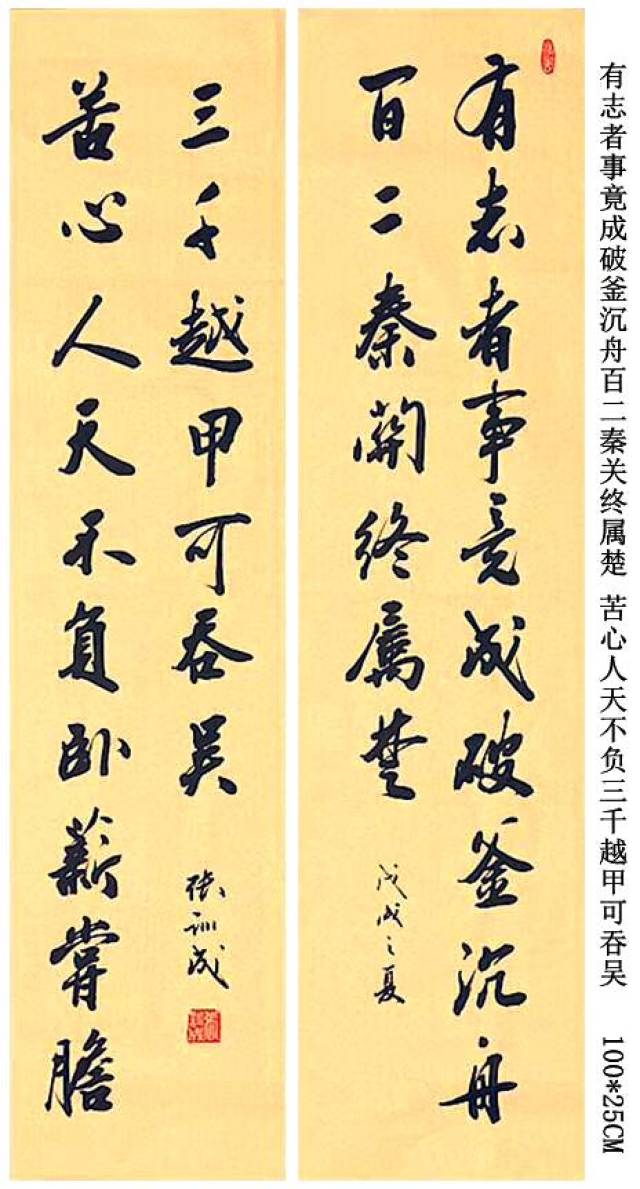 有志者事竟成破釜沉舟
百二秦關终屬楚
戊戌之夏
苦心人天不負卧薪嘗膽
三千越甲可吞吴
张训成
有志者事竟成破釜沉舟百二秦关终属楚 苦心人天不负三千越甲可吞吴 100*25CM